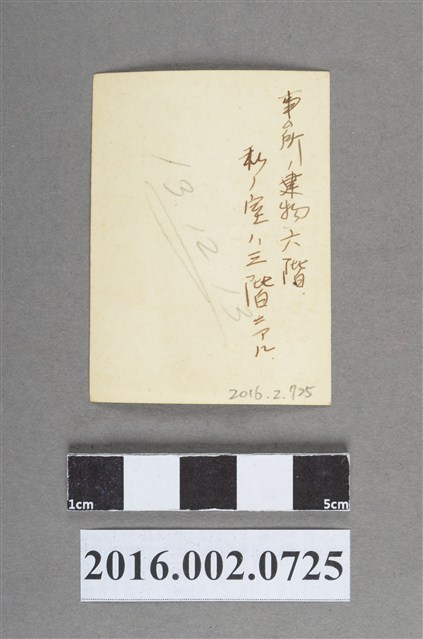 事ム所ノ建物六階.
私ノ室ハ三階ニアル.
13.12.13
2016.2.725
1cm
5cm
2016.002.0725